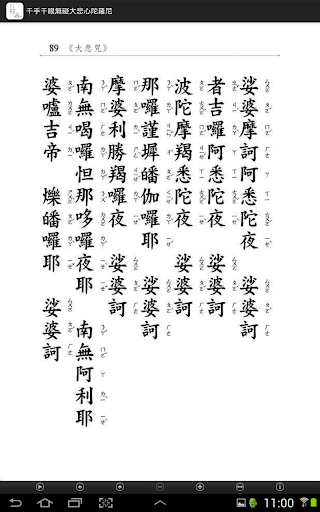 千手千眼無礙大悲心陀羅尼
89 《大悲咒》
娑婆摩訶阿悉陀夜 娑婆訶
者吉囉阿悉陀夜 娑婆訶
波陀摩羯悉陀夜 娑婆訶
那囉謹墀皤伽囉耶 娑婆訶
摩婆利勝羯囉夜 娑婆訶
南無喝囉怛那哆囉夜耶 南無阿利耶
婆嚧吉帝 爍皤囉耶 娑婆訶
11:00